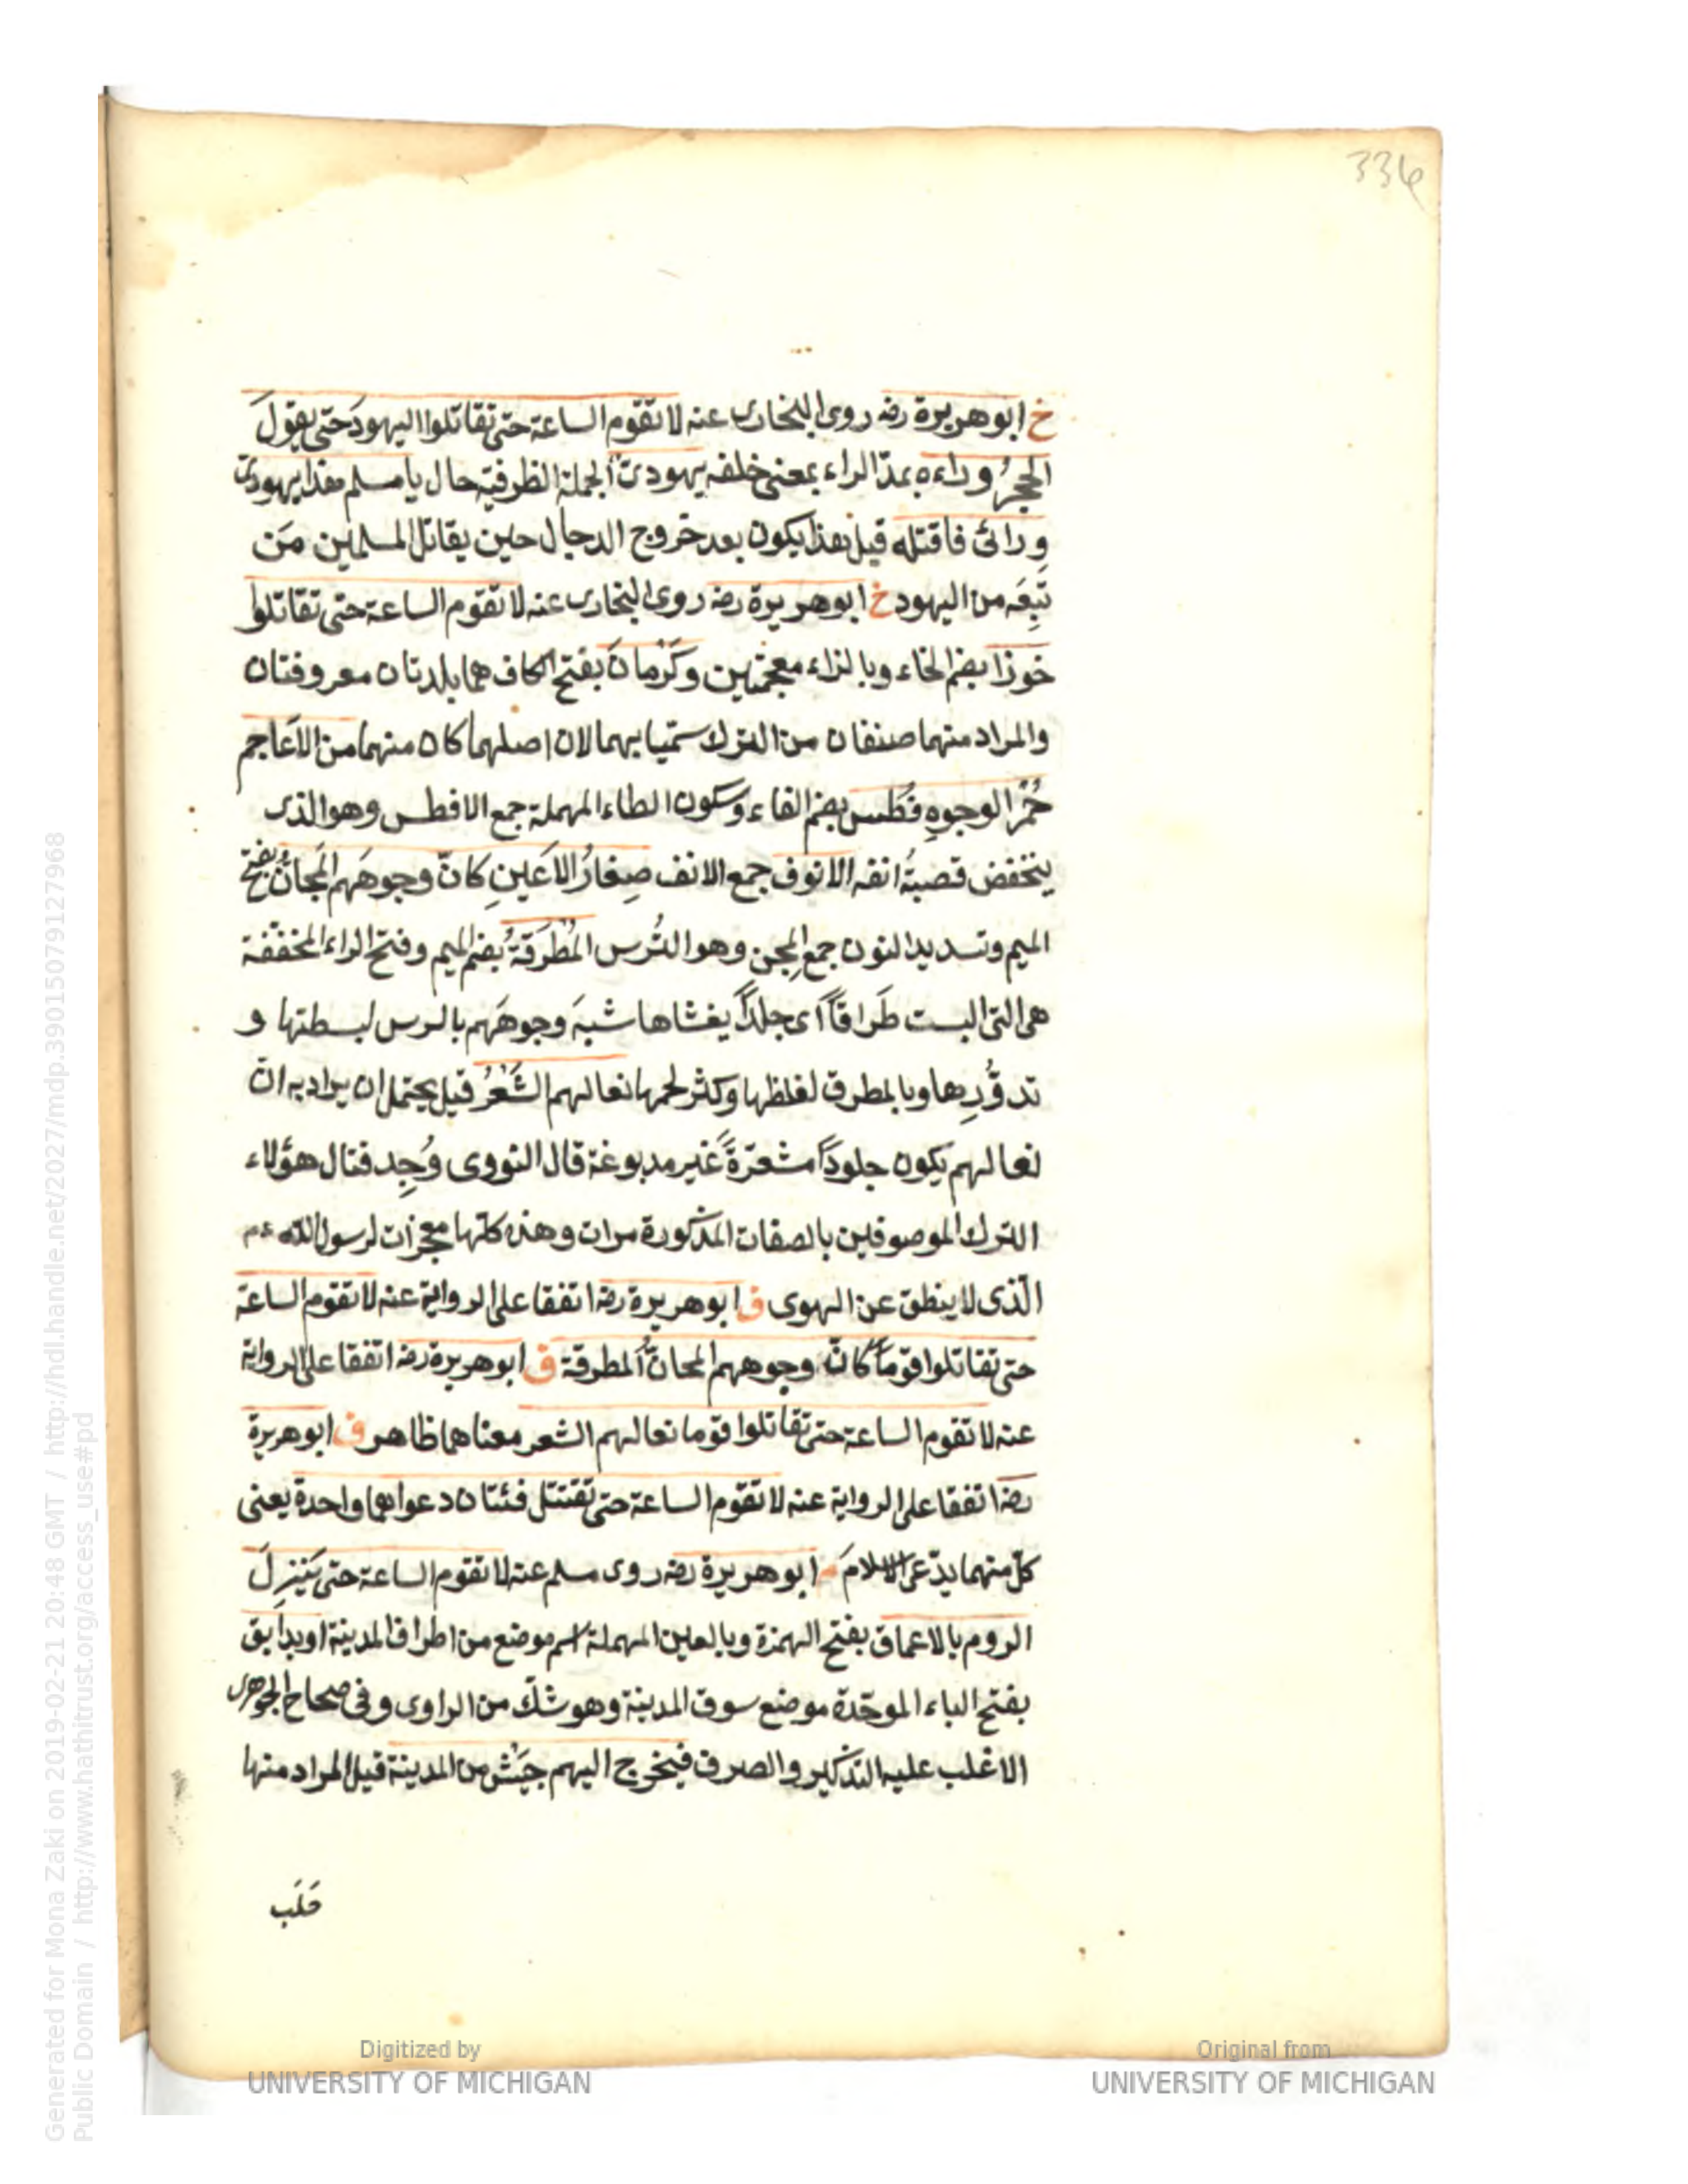 336
خ ابو هريرة رضه روى البخارى عنه لا تقوم الساعة حتى تقاتلوا اليهود حتى يقول
الحجرُ وراءه بمدّ الراء بمعنى خلفه يهودىّ الجملة الظرفية حال يا مسلم هذا يهودىّ
ورائى فاقتله قيل هذا يكون بعد خروج الدجال حين يقاتل المسلمين مَن
تَبِعَه من اليهود خ ابو هريرة رضه روى البخارى عنه لا تقوم الساعة حتى تقاتلوا
خوزا بضم الخاء وبالزاء معجمتين وكَرْمانَ بفتح الكاف هما بلدتان معروفتان
والمراد منهما صنفان من الترك سمّيا بهما لان اصلهما كان منهما من الاعاجم
حُمْرُ الوجوهِ فُطْس بضم الفاء وسكون الطاء المهملة جمع الافطس وهو الذى
ينخفض قصبةُ انفه الانوف جمع الانف صِغارُ الاَعينِ كانّ وجوهَهم المَجانُّ بفتح
الميم وتشديد النون جمع المِجن وهو التُرس المُطْرَقَةُ بضم الميم وفتح الراء المخففة
هى التى البست طَراقاً اى جلداً يغشاها شبهَ وجوهَهم بالترس لبسطتها و
تدوُّرِها وبالمطرق لغلظها وكثر لحمها نعالهم الشَعْرُ قيل يحتمل ان يراد به انّ
نعالهم يكون جلوداً مشعرّةً غير مدبوغة قال النووى وُجِد قتال هؤلاء
الترك الموصوفين بالصفات المذكورة مرات وهذه كلّها معجزات لرسول الله عم
الّذى لا ينطق عن الهوى ق ابو هريرة رضه اتفقا على الرواية عنه لا تقوم الساعة
حتى تقاتلوا قوماً كانّ وجوههم المجانُّ المطرقة ق ابو هريرة رضه اتفقا على الرواية
عنه لا تقوم الساعة حتى تقاتلوا قوما نعالهم الشعر معناهما ظاهر ق ابو هريرة
رضه اتفقا على الرواية عنه لا تقوم الساعة حتى تقتتل فئتان دعواهما واحدة يعنى
كلّ منهما يدّعى الاسلامَ م ابو هريرة رضه روى مسلم عنه لا تقوم الساعة حتى يَنْزِلَ
الروم بالاعماق بفتح الهمزة وبالعين المهملة اسم موضع من اطراف المدينة او بدابق
بفتح الباء الموحّدة موضع سوق المدينة وهو شكّ من الراوى وفى صحاح الجوهرى
الاغلب عليه التذكير والصرف فيخرج اليهم جَيْش من المدينة قيل المراد منها
حَلَب
Generated for Mona Zaki on 2019-02-21 20:48 GMT / http://hdl.handle.net/2027/mdp.39015079127968
Public Domain / http://www.hathitrust.org/access_use#pd
Digitized by
UNIVERSITY OF MICHIGAN
Original from
UNIVERSITY OF MICHIGAN